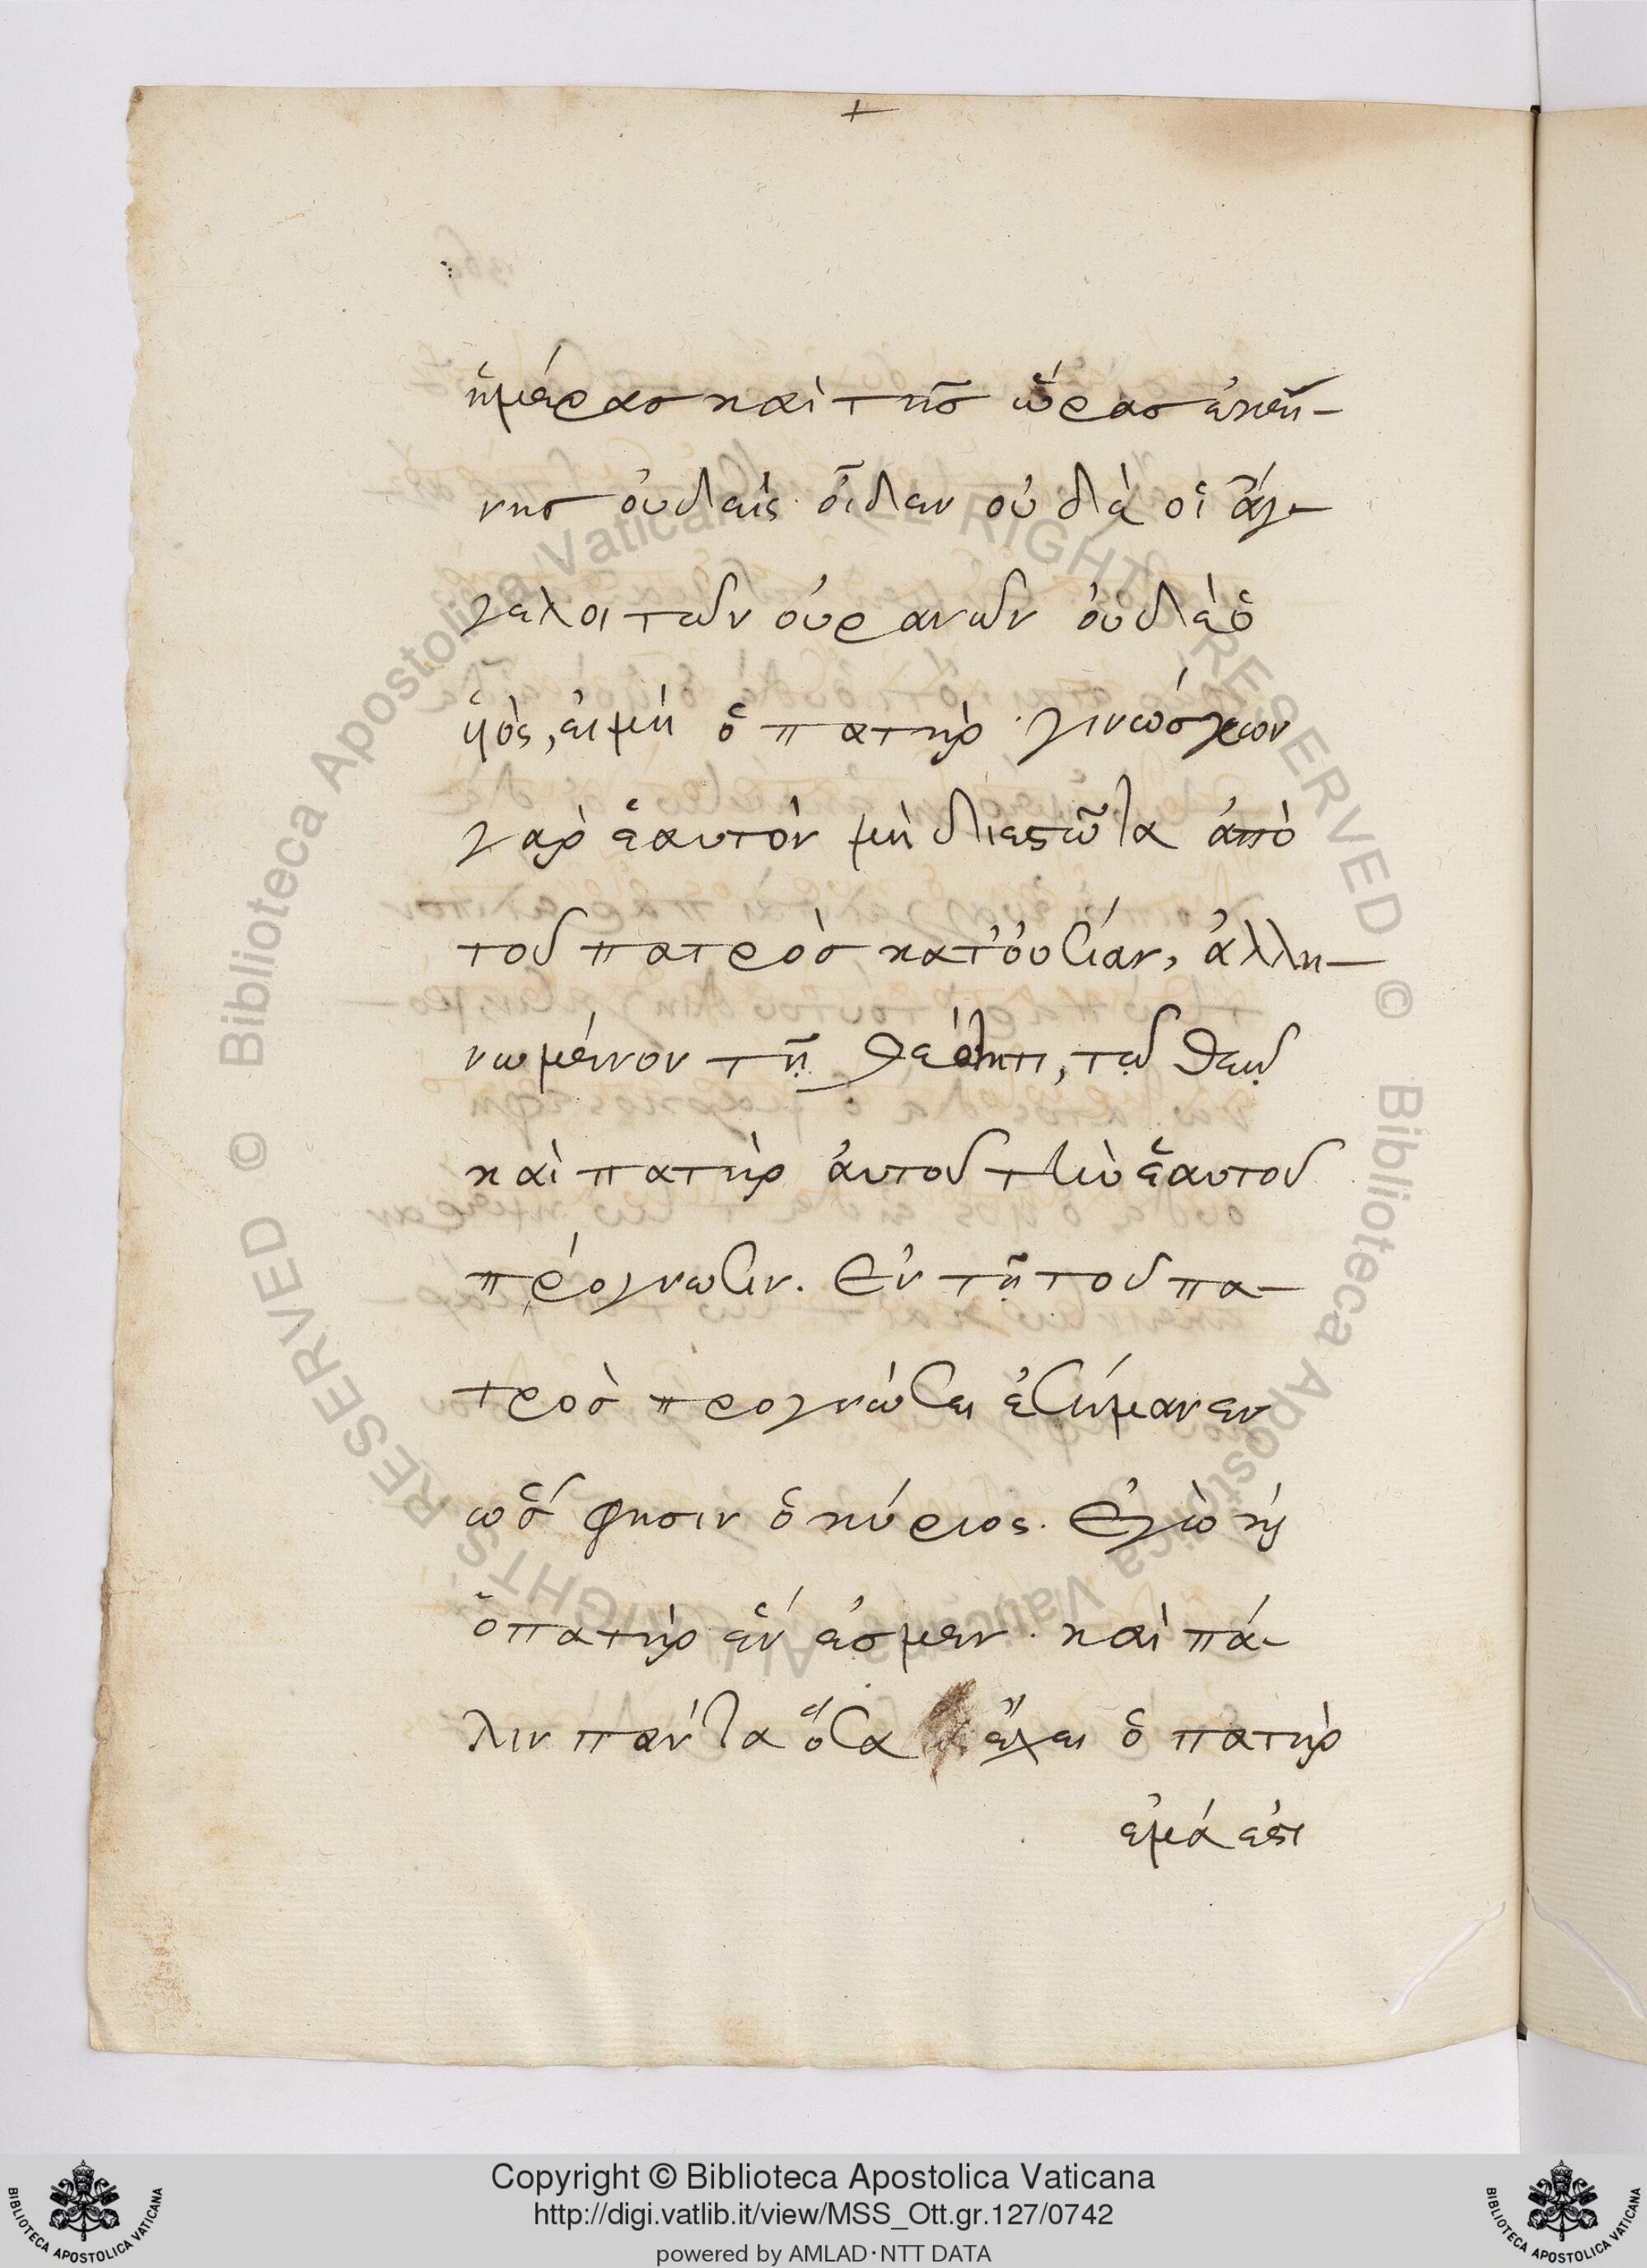 +
ἡμέρας καὶ τῆς ὥρας ἐκεί-
νης οὐδεὶς οἶδεν οὐδὲ οἱ ἄγ-
γελοι τῶν οὐρανῶν οὐδὲ ὁ
ὑιὸς, εἰ μὴ ὁ πατὴρ · γινώσκων
γαρ ἑαυτὸν μὴ διεστῶτα ἀπὸ
τοῦ πατρὸς κατ' οὐσίαν, ἀλλη-
νωμένον τῆ θεότητι, τῶ θεῶ
καὶ πατὴρ ἀυτοῦ τὴν ἑαυτοῦ
πρόγνωσιν. Ἐν τῆ τοῦ πα-
τρὸς προγνώσει ἐσήμανεν
ὥς φησιν ὁ κύριος. Ἐγὼ καὶ
ὁ πατὴρ ἕν ἐσμεν · καὶ πά-
λιν πάντα ὅσα ἔχει ὁ πατὴρ
ἐμά ἐστι
Copyright © Biblioteca Apostolica Vaticana
http://digi.vatlib.it/view/MSS_Ott.gr.127/0742
powered by AMLAD·NTT DATA
BIBLIOTECA APOSTOLICA VATICANA
BIBLIOTECA APOSTOLICA VATICANA
© Biblioteca Apostolica Vaticana ALL RIGHTS RESERVED
© Biblioteca Apostolica Vaticana ALL RIGHTS RESERVED